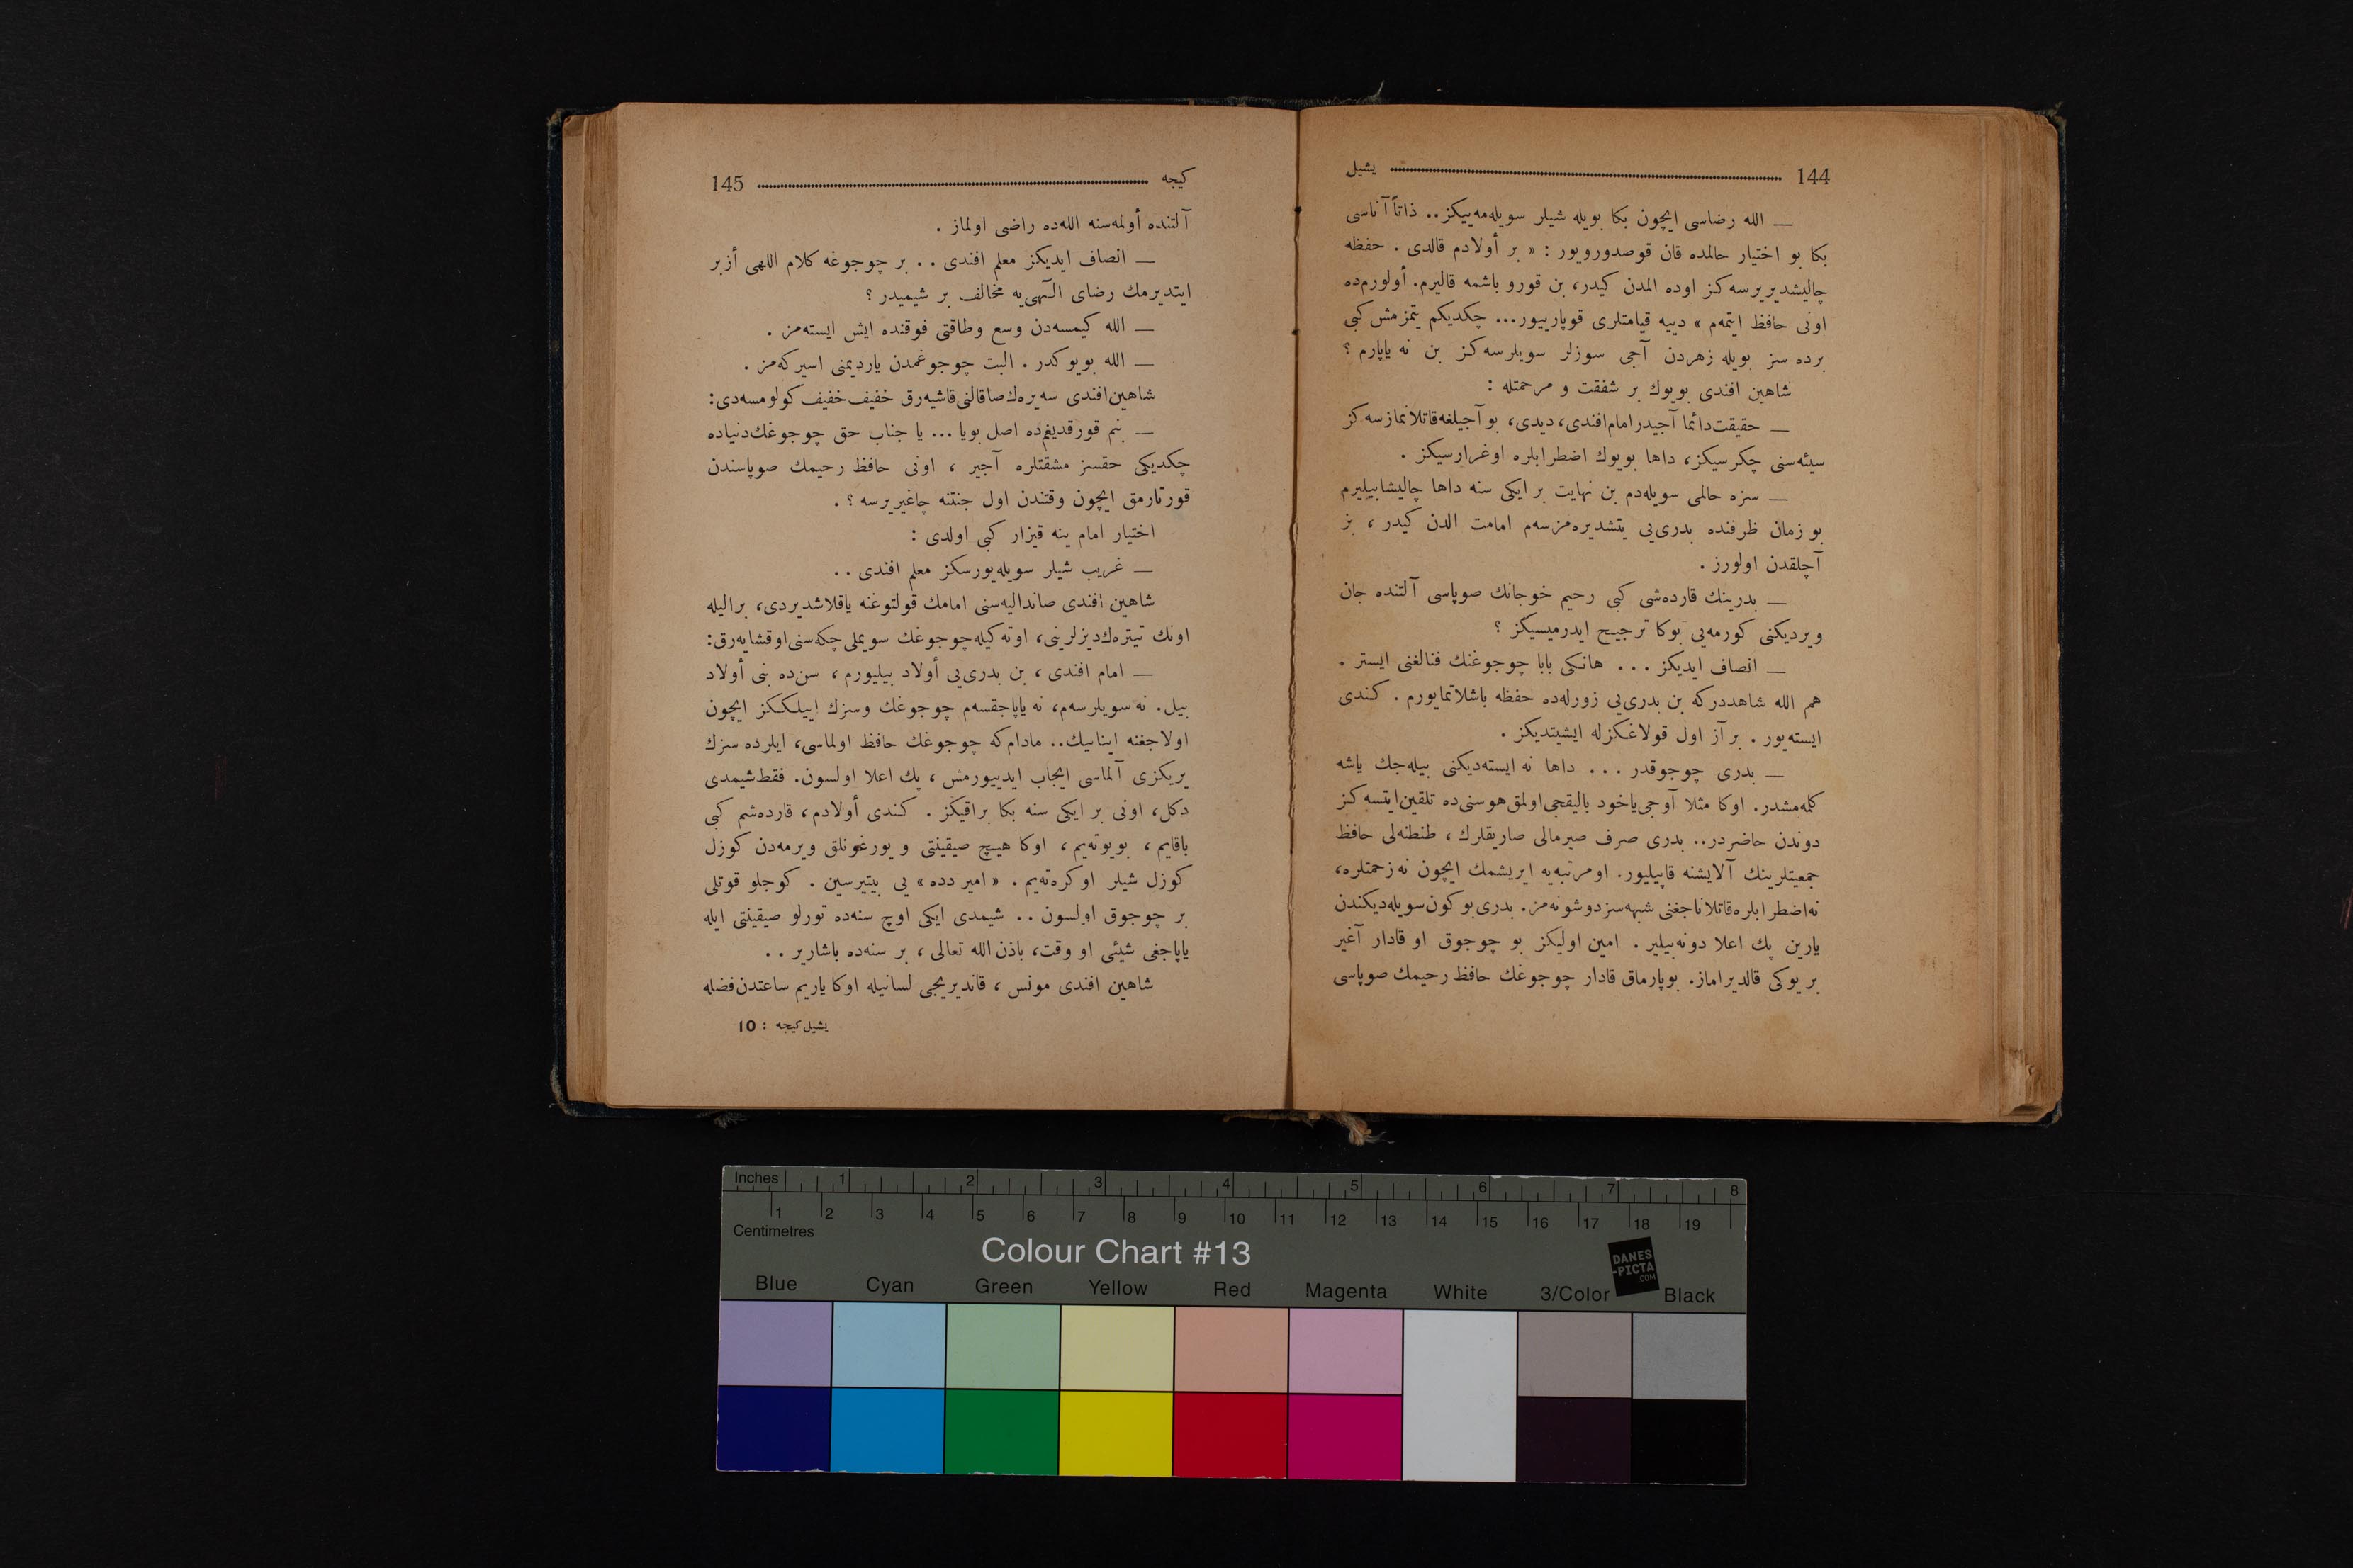 144 یشیل
— الله رضاسی ایچون بکا بویله شیلر سویله‌مه‌ییکز.. ذاتاً آناسی
بکا بو اختیار حالمده قان قوصدورویور : « بر أولادم قالدی . حفظه
چالیشدیریرسه‌کز اوده المدن کیدر، بن قورو باشمه قالیرم. أولورم‌ده
اونی حافظ ایتمم » دییه قیامتلری قوپارییور... چکدیکم یتمزمش کبی
برده سز بویله زهردن آجی سوزلر سویلرسه‌کز بن نه یاپارم ؟
شاهین افندی بویوك بر شفقت و مرحمتله :
— حقیقت دائما آجیدر امام افندی، دیدی، بو آجیلغه قاتلانمازسه‌کز
سیئه‌سنی چکرسیکز، داها بویوك اضطرابلره اوغرارسیکز .
— سزه حالمی سویله‌دم بن نهایت بر ایکی سنه داها چالیشابیلیرم
بو زمان ظرفنده بدری‌یی یتشدیره‌مزسه‌م امامت الدن کیدر ، بز
آچلقدن اولورز .
— بدرینك قارده‌شی کبی رحیم خوجانك صوپاسی آلتنده جان
ویردیکنی کورمه‌یی بوکا ترجیح ایدرمیسیکز ؟
— انصاف ایدیکز ... هانکی بابا چوجوغنك فنالغنی ایستر .
هم الله شاهددرکه بن بدری‌یی زورله‌ده حفظه باشلاتمایورم . کندی
ایسته‌یور . بر آز اول قولاغکزله ایشیتدیکز .
— بدری چوجوقدر ... داها نه ایسته‌دیکنی بیله‌جك یاشه
کلمه‌مشدر. اوکا مثلا آوجی یاخود بالیقجی اولمق هوسنی‌ده تلقین ایتسه‌کز
دوندن حاضردر.. بدری صرف صیرمالی صاریقلرك ، طنطنه‌لی حافظ
جمعیتلرینك آلایشنه قاپیلیور. او مرتبه‌یه ایریشمك ایچون نه زحمتلره،
نه اضطرابلره قاتلاناجغنی شبهه‌سز دوشونه‌مز. بدری بوکون سویله‌دیکندن
یارین پك اعلا دونه‌بیلیر . امین اولیکز بو چوجوق او قادار آغیر
بر یوکی قالدیراماز. بو پارماق قادار چوجوغك حافظ رحیمك صوپاسی
کیجه 145
آلتنده أولمه‌سنه الله‌ده راضی اولماز .
— انصاف ایدیکز معلم افندی .. بر چوجوغه کلام اللهی أزبر
ایتدیرمك رضای الٓهی‌یه مخالف بر شیمیدر ؟
— الله کیمسه‌دن وسع وطاقتی فوقنده ایش ایسته‌مز .
— الله بویوکدر . البت چوجوغمدن یاردیمنی اسیرکه‌مز .
شاهین افندی سه‌یره‌ك صاقالنی قاشیه‌رق خفیف خفیف کولومسه‌دی:
— بنم قورقدیغم‌ده اصل بویا ... یا جناب حق چوجوغك دنیاده
چکدیکی حقسز مشقتلره آجیر ، اونی حافظ رحیمك صوپاسندن
قورتارمق ایچون وقتندن اول جنتنه چاغیریرسه ؟ .
اختیار امام ینه قیزار کبی اولدی :
— غریب شیلر سویله‌یورسکز معلم افندی ..
شاهین افندی صاندالیه‌سنی امامك قولتوغنه یاقلاشدیردی، بر الیله
اونك تیتره‌ك دیزلرینی، اوته کیله چوجوغك سویملی چکه‌سنی اوقشایه‌رق:
— امام افندی ، بن بدری‌یی أولاد بیلیورم ، سن‌ده بنی أولاد
بیل. نه سویلرسه‌م، نه یاپاجقسه‌م چوجوغك وسزك اییلککز ایچون
اولاجغنه اینانیك.. مادام‌که چوجوغك حافظ اولماسی، ایلرده سزك
یریکزی آلماسی ایجاب ایدییورمش ، پك اعلا اولسون. فقط شیمدی
دکل، اونی بر ایکی سنه بکا براقیکز . کندی أولادم، قارده‌شم کبی
باقایم ، بویوته‌یم ، اوکا هیچ صیقینتی و یورغونلق ویرمه‌دن کوزل
کوزل شیلر اوکره‌ته‌یم . « امیر دده » یی بیتیرسین . کوجلو قوتلی
بر چوجوق اولسون .. شیمدی ایکی اوچ سنه‌ده تورلو صیقینتی ایله
یاپاجغی شیئی او وقت، باذن الله تعالی ، بر سنه‌ده باشاریر ..
شاهین افندی مونس ، قاندیریجی لسانیله اوکا یاریم ساعتدن فضله
یشیل کیجه : 10
Inches 1 2 3 4 5 6 7 8
1 2 3 4 5 6 7 8 9 10 11 12 13 14 15 16 17 18 19
Centimetres
Colour Chart #13
DANES
-PICTA
.COM
Blue Cyan Green Yellow Red Magenta White 3/Color Black